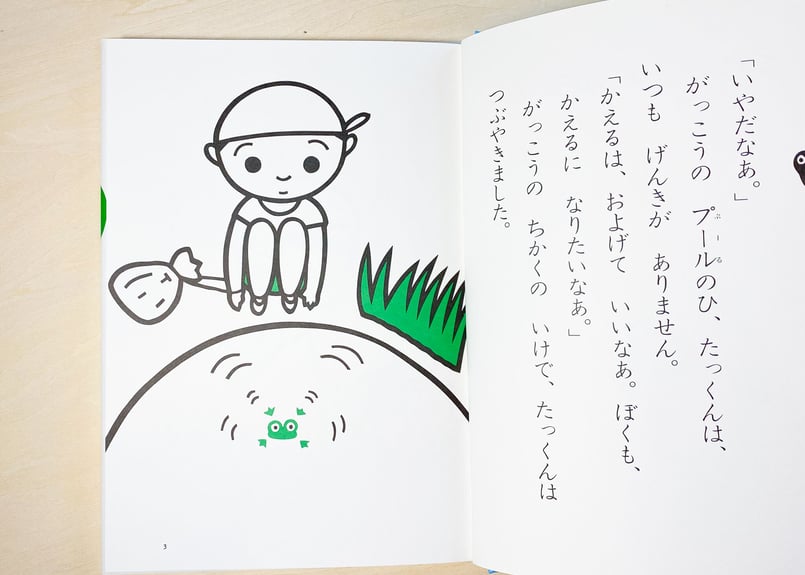 「いやだなあ。」
がっこうの　プールのひ、たっくんは、
ぷーる
いつも　げんきが　ありません。
「かえるは、およげて　いいなあ。ぼくも、
かえるに　なりたいなあ。」
がっこうの　ちかくの　いけで、たっくんは
つぶやきました。
3